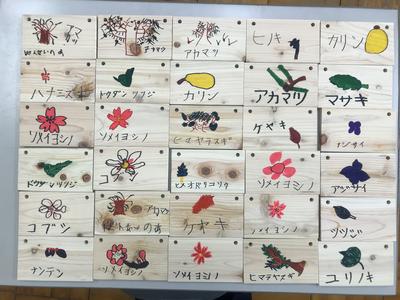 アカマツ
ヒノキ
カリン
ハナミズキ
ドウダンツツジ
カリン
アカマツ
マサキ
ソメイヨシノ
ヒマラヤスギ
ケヤキ
ドウダンツツジ
コブシ
ヒメオドリコソウ
ソメイヨシノ
アジサイ
コブシ
アカマツ
ケヤキ
ソメイヨシノ
ツツジ
ナンテン
ソメイヨシノ
ソメイヨシノ
ヒマラヤスギ
ユリノキ